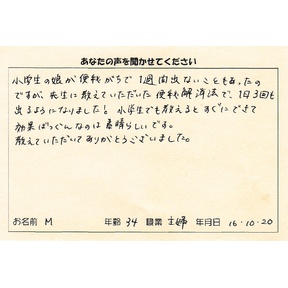 あなたの声を聞かせてください
小学生の娘が便秘がちで1週間出ないこともあったの
ですが、先生に教えていただいた便秘解消法で、1日3回も
出るようになりました！小学生でも教えるとすぐにできて
効果ばつぐんなのは素晴らしいです。
教えていただいてありがとうございました。
お名前 M 年齢 34 職業 主婦 年月日 16・10・20